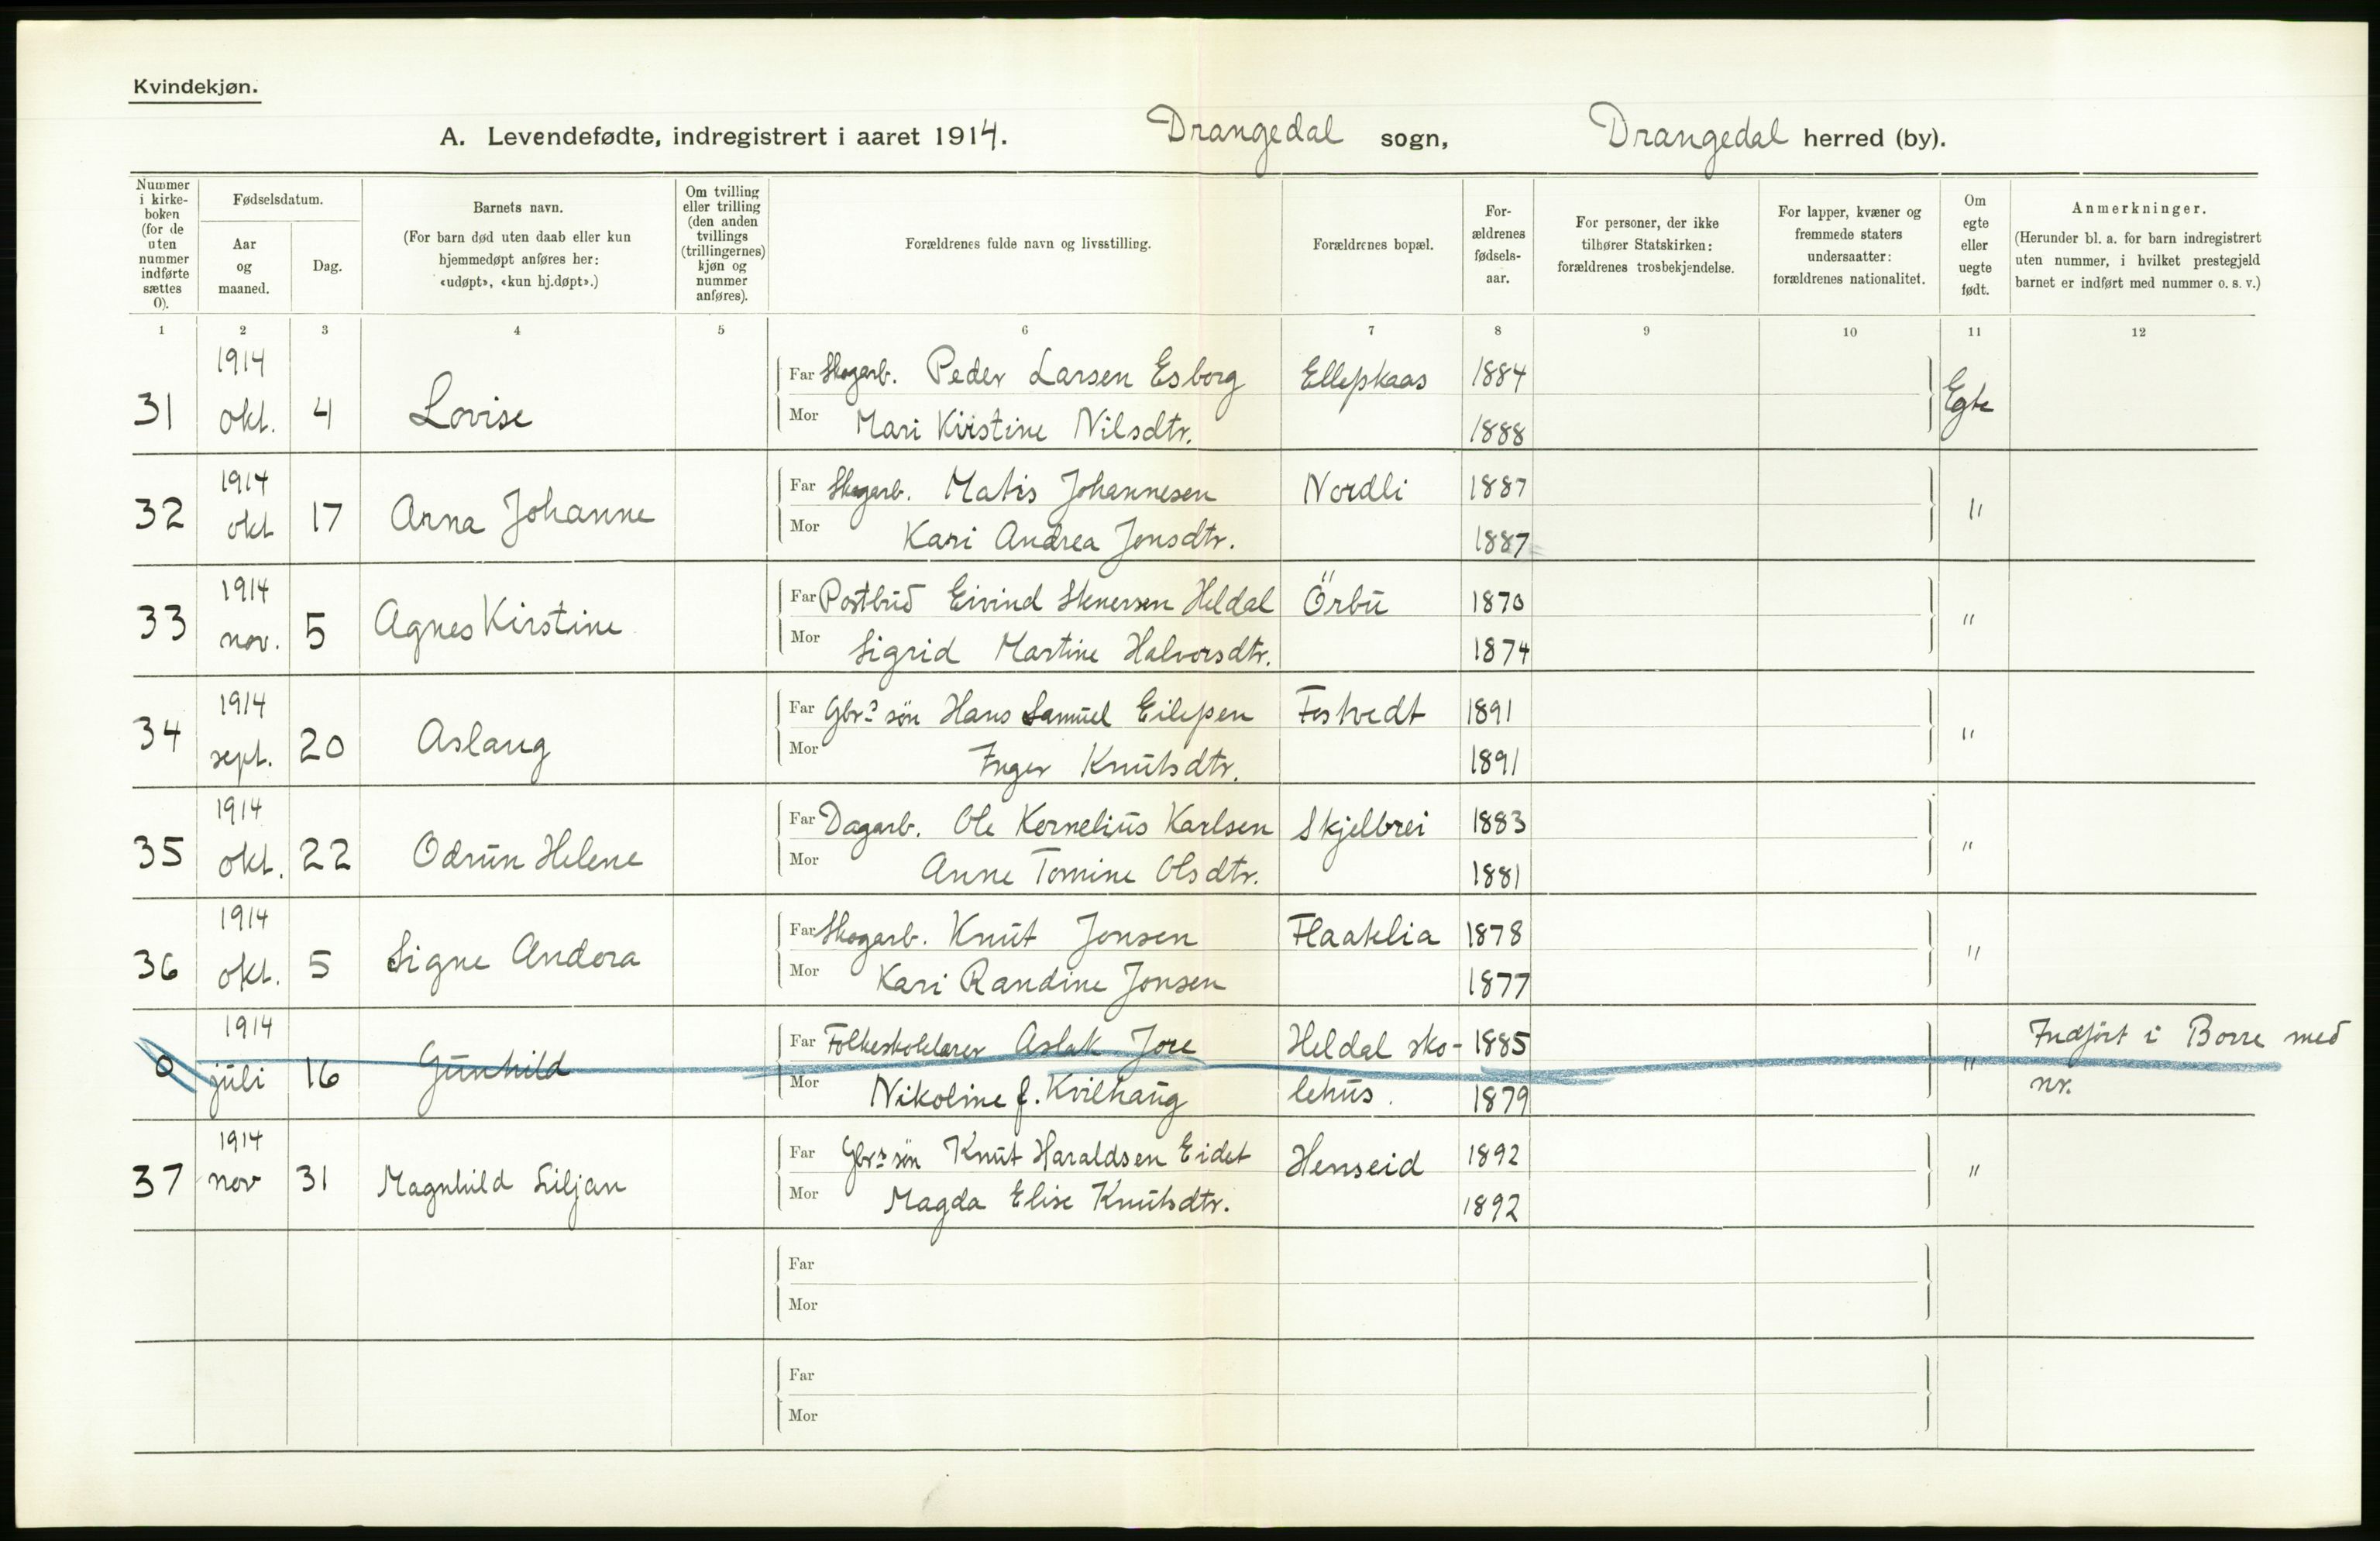 Kvindekjøn.
A. Levendefødte, indregistrert i aaret 1914. Drangedal sogn, Drangedal herred (by).
Nummer i kirke-boken (for de uten nummer indførte sættes 0).
Fødselsdatum.
Aar og maaned.
Dag.
Barnets navn.
(For barn død uten daab eller kun hjemmedøpt anføres her: «udøpt», «kun hj.døpt».)
Om tvilling eller trilling (den anden tvillings (trillingernes) kjøn og nummer anføres).
Forældrenes fulde navn og livsstilling.
Forældrenes bopæl.
For-ældrenes fødsels-aar.
For personer, der ikke tilhører Statskirken: forældrenes trosbekjendelse.
For lapper, kvæner og fremmede staters undersaatter: forældrenes nationalitet.
Om egte eller uegte født.
Anmerkninger.
(Herunder bl. a. for barn indregistrert uten nummer, i hvilket prestegjeld barnet er indført med nummer o. s. v.)
1 2 3 4 5 6 7 8 9 10 11 12
31 1914 okt. 4 Lovise Far Skogarb. Peder Larsen Esborg Ellefskaas 1884 Egte
Mor Mari Kirstine Nilsdtr. 1888
32 1914 okt 17 Arna Johanne Far Skogarb. Matis Johannesen Nordli 1887 "
Mor Kari Andrea Jonsdtr. 1887
33 1914 nov. 5 Agnes Kirstine Far Postbud Eivind Stenersen Heldal Örbu 1870 "
Mor Sigrid Martine Halvorsdtr. 1874
34 1914 sept. 20 Aslaug Far Gbr. søn Hans Samuel Eilefsen Fostvedt 1891 "
Mor Inger Knutsdtr. 1891
35 1914 okt. 22 Odrun Helene Far Dagarb. Ole Kornelius Karlsen Skjelbrei 1883 "
Mor Anne Tomine Olsdtr. 1881
36 1914 okt. 5 Signe Andora Far Skogarb. Knut Jonsen Flaatelia 1878 "
Mor Kari Randine Jonsen 1877
0 1914 juli 16 Gunhild Far Folkeskolelærer Aslak Jore Heldal sko- 1885 " Indført i Borre med
Mor Nikoline f. Kvilhaug lehus. 1879 nr.
37 1914 nov 31 Magnhild Liljan Far Gbr. søn Knut Haraldsen Eidet Henseid 1892 "
Mor Magda Elise Knutsdtr. 1892
Far
Mor
Far
Mor